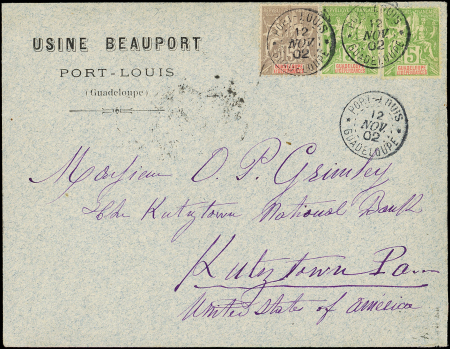 USINE BEAUPORT
PORT-LOUIS
(Guadeloupe)
PORT-LOUIS
12
NOV
02
GUADELOUPE
PORT-LOUIS
12
NOV
02
GUADELOUPE
5
PORT-LOUIS
12
NOV
02
GUADELOUPE
Monsieur O. P. Grimley
The Kutztown National Bank
Kutztown Pa
United States of America